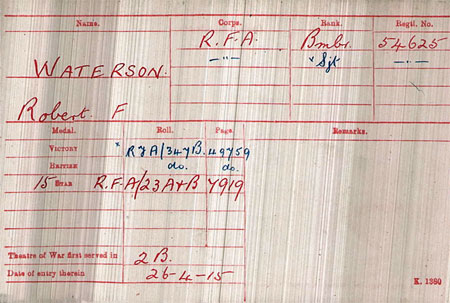 Name. Corps. Rank. Regtl. No.
R.F.A. Bmbr. 54625
WATERSON. —"— * Sjt —"—
Robert. F
Medal. Roll. Page. Remarks.
VICTORY * RFA/347B. 49759
BRITISH do. do.
15 STAR R.F.A/23A+B 7919
Theatre of War first served in 2B.
Date of entry therein 26-4-15
K. 1380